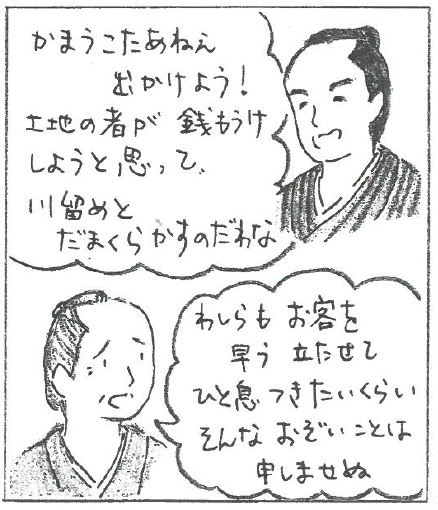 かまうこたあねぇ
出かけよう!
土地の者が 銭もうけ
しようと思って、
川留めと
だまくらかすのだわな
わしらも お客を
早う 立たせて
ひと息 つきたいくらい
そんな おぞいことは
申しませぬ